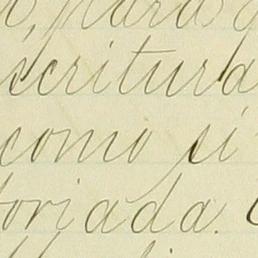 para
scritura
como si
toriada.